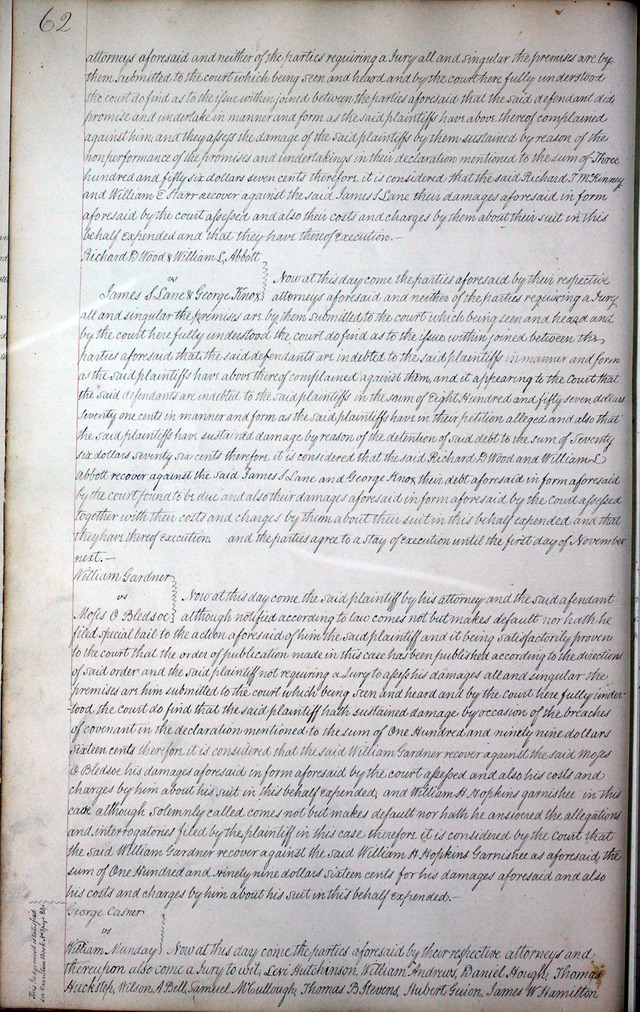 62
attorneys aforesaid and neither of the parties requiring a Jury all and singular the premises are by
them Submitted to the court which being seen and heard and by the court here fully understood
the court do find as to the issue within joined between the parties aforesaid that the said defendant did
promise and undertake in manner and form as the said plaintiffs have above thereof complained
against him, and they assess the damage of the said plaintiffs by them sustained by reason of the
nonperformance of the promises and undertakings in their declaration mentioned to the sum of Three
hundred and fifty six dollars seven cents therefore it is considered that the said Richard T McKinney
and William E Starr recover against the said James S Lane their damages aforesaid in form
aforesaid by the court assessed and also their costs and charges by them about their suit in this
behalf expended and that they have thereof execution. —
Richard D Wood & William L, Abbott
vs
Now at this day come the parties aforesaid by their respective
James S Lane & George Knox attorneys aforesaid and neither of the parties requiring a Jury
all and singular the premises are by them submitted to the court which being seen and heard and
by the court here fully understood the court do find as to the issue within joined between the
parties aforesaid that the said defendants are indebted to the said plaintiffs in manner and form
as the said plaintiffs have above thereof complained against them, and it appearing to the Court that
the said defendants are indebted to the said plaintiffs in the sum of Eight Hundred and fifty seven dollars
seventy one cents in manner and form as the said plaintiffs have in their petition alleged and also that
the said plaintiffs have sustained damage by reason of the detention of said debt to the sum of Seventy
six dollars seventy six cents therefore it is considered that the said Richard D Wood and William L
Abbott recover against the said James S Lane and George Knox their debt aforesaid in form aforesaid
by the court found to be due and also their damages aforesaid in form aforesaid by the court assessed
together with their costs and charges by them about their suit in this behalf expended and that
they have thereof execution. and the parties agree to a stay of execution until the first day of November
next. —
William Gardner
vs Now at this day come the said plaintiff by his attorney and the said afendant
Moses O Bledsoe although notified according to law comes not but makes default nor hath he
filed special bail to the action aforesaid of him the said plaintiff and it being satisfactorily proven
to the court that the order of publication made in this case has been published according to the directions
of said order and the said plaintiff not requiring a Jury to assess his damages all and singular the
premises are him submitted to the court which being seen and heard and by the court here fully under-
stood the court do find that the said plaintiff hath sustained damage by occasion of the breaches
of covenant in the declaration mentioned to the sum of One Hundred and ninety nine dollars
Sixteen cents therefore it is considered that the said William Gardner recover against the said Moses
O Bledsoe his damages aforesaid in form aforesaid by the court assessed and also his costs and
charges by him about his suit in this behalf expended, and William H Hopkins garnishee in this
case although solemnly called comes not but makes default nor hath he answered the allegations
and interrogatories filed by the plaintiff in this case therefore it is considered by the Court that
the said William Gardner recover against the said William H Hopkins Garnishee as aforesaid, the
sum of One Hundred and Ninety nine dollars Sixteen cents for his damages aforesaid and also
his costs and charges by him about his suit in this behalf expended. —
George Casner
vs
William Munday Now at this day come the parties aforesaid by their respective attorneys and
thereupon also come a Jury to wit, Levi Hutchinson, William Andrews, Daniel Hough, Thomas
Huckstep, Wilson A Bell, Samuel McCullough, Thomas B Stevens, Hubert Guion, James W Hamilton
This Judgment is satisfied
see Execution Book